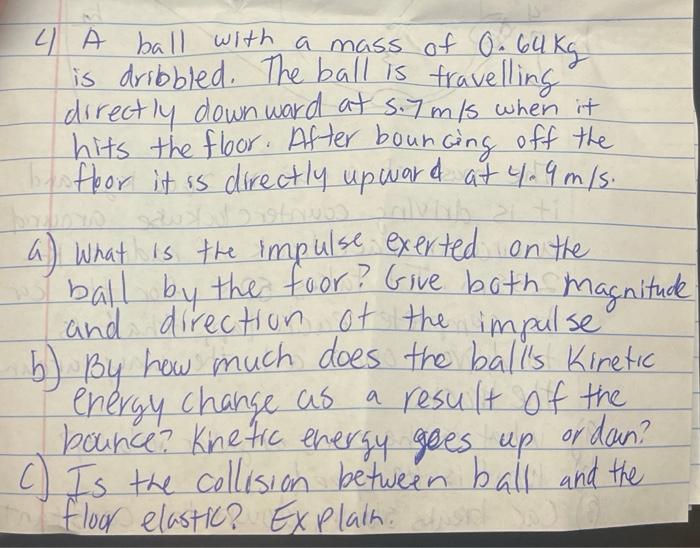 4) A ball with a mass of 0.64 kg
is dribbled. The ball is travelling
directly downward at 5.7 m/s when it
hits the floor. After bouncing off the
floor it is directly upward at 4.9 m/s.
a) What is the impulse exerted on the
ball by the foor? Give both magnitude
and direction of the impulse
b) By how much does the ball's Kinetic
energy change as a result of the
bounce? Knetic energy goes up or down?
c) Is the collision between ball and the
floor elastic? Explain.